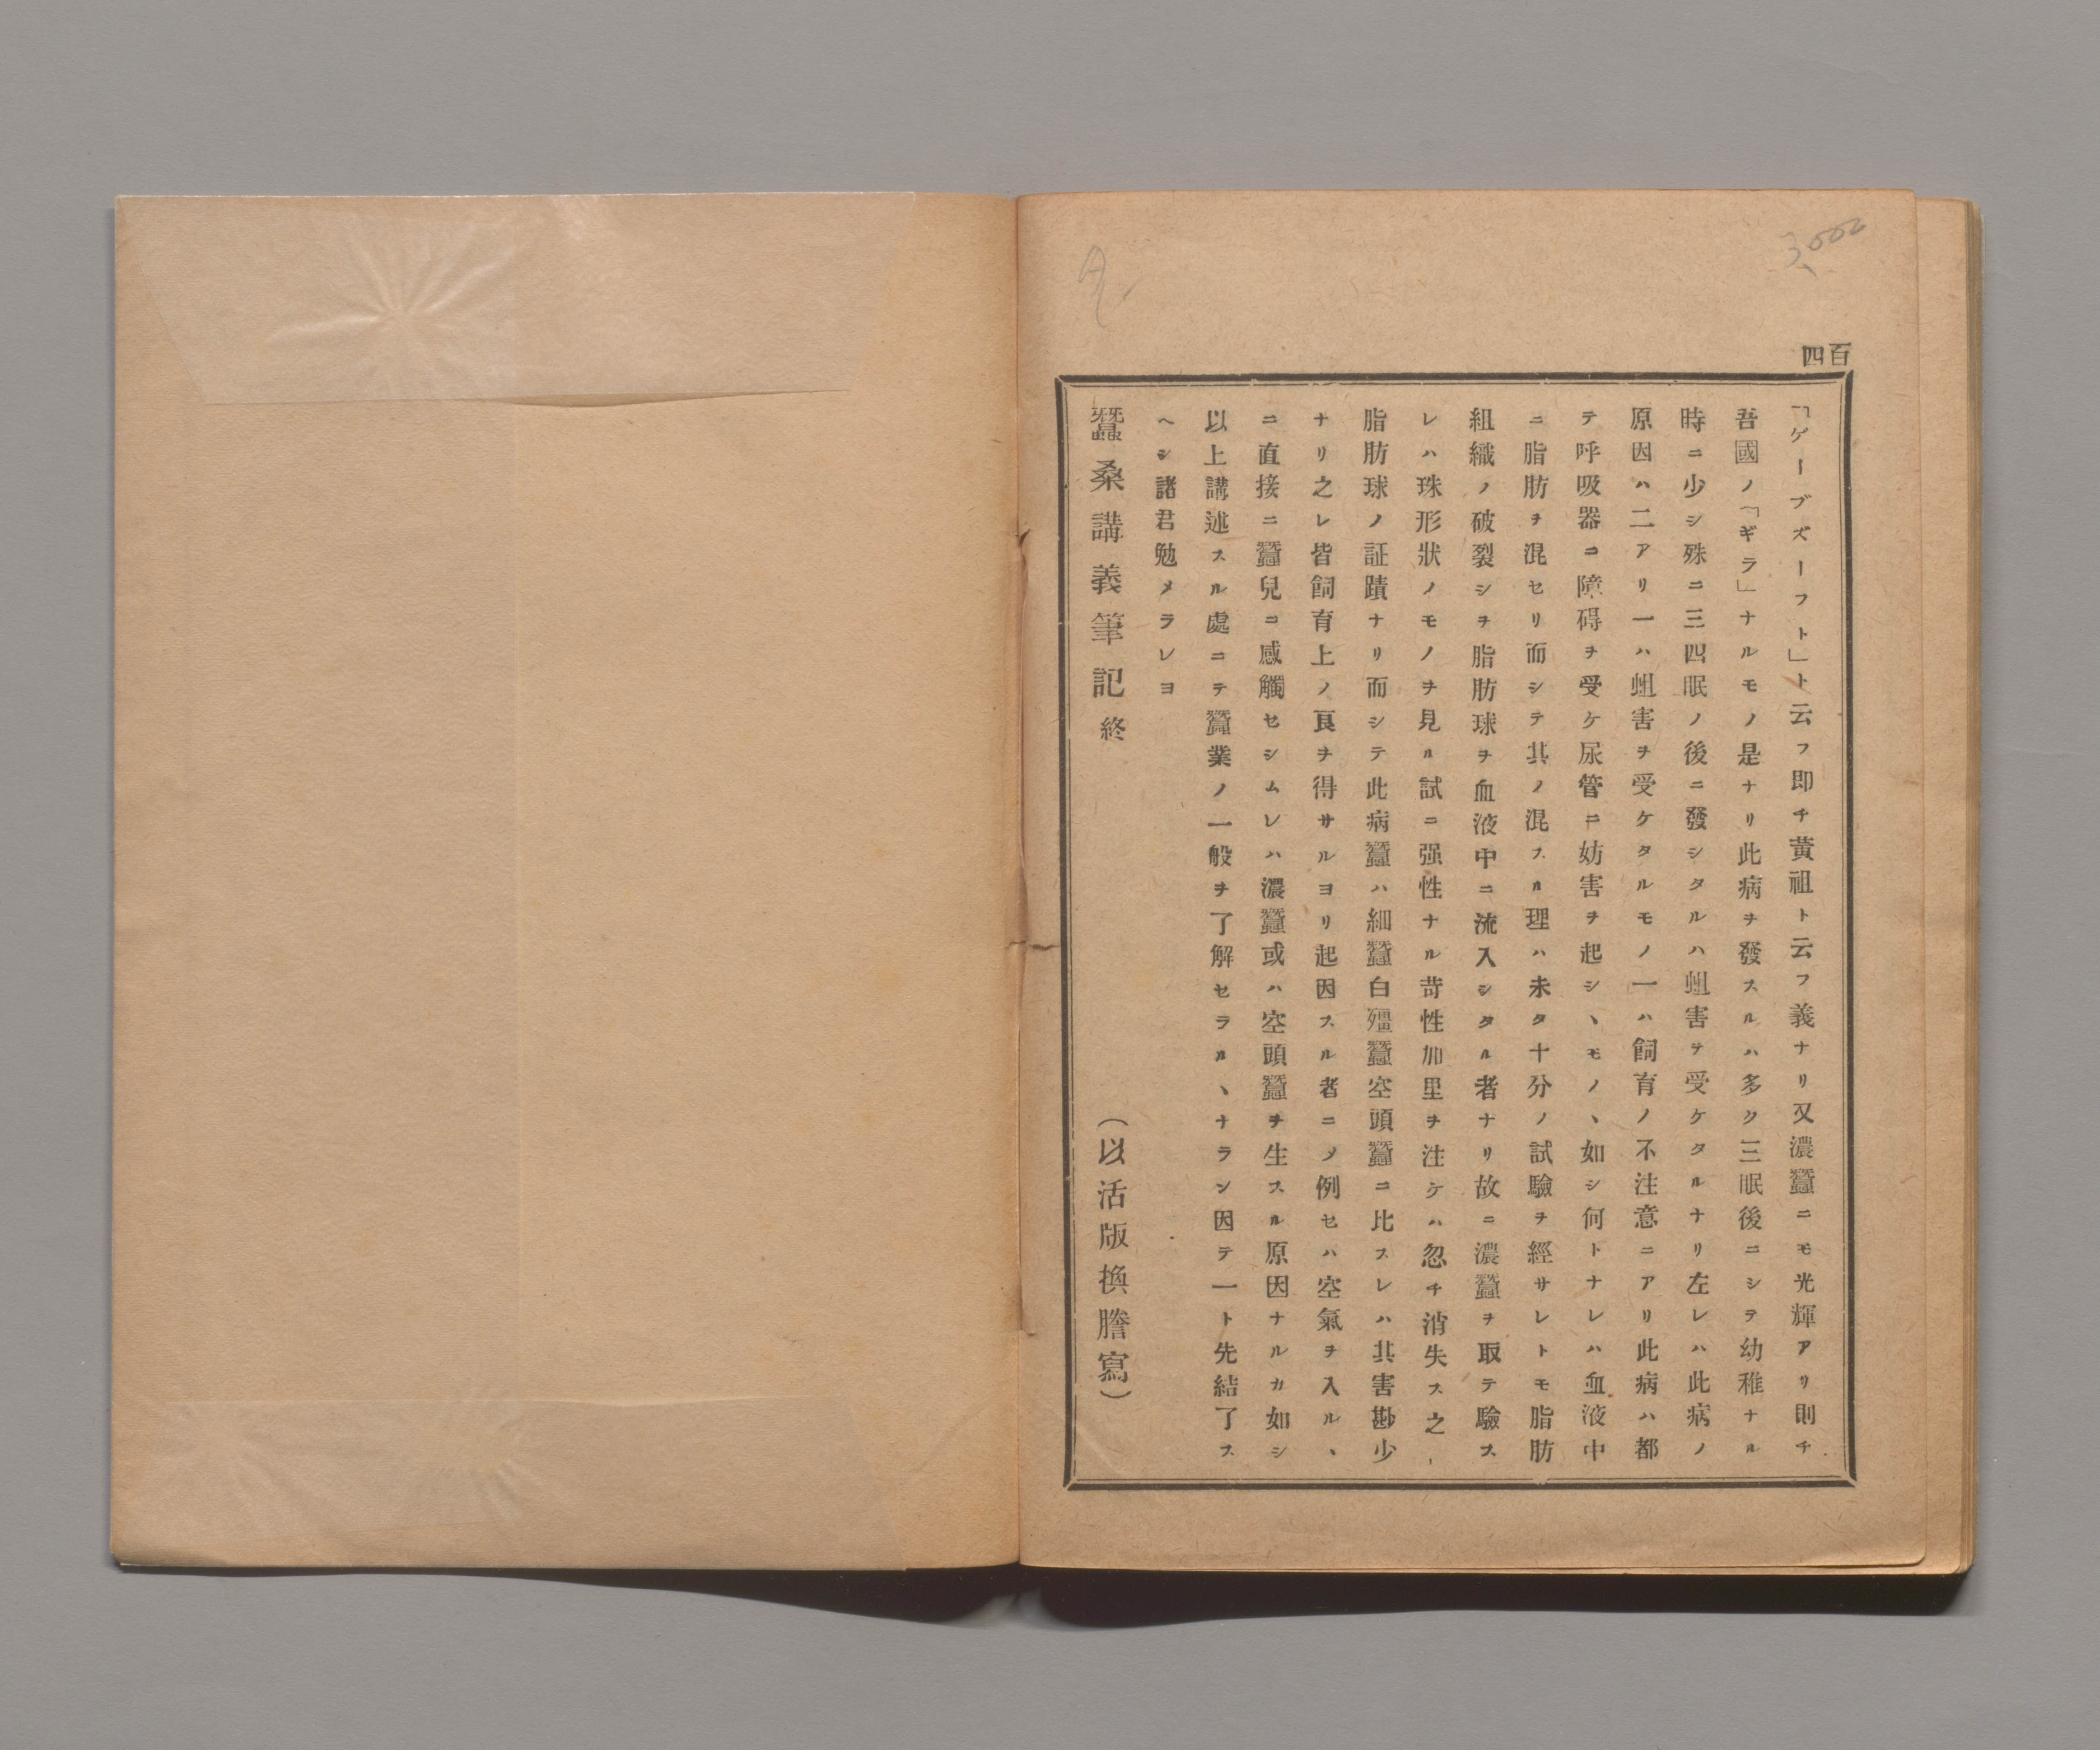 百四
「ゲーブズーフト」ト云フ即チ黄祖ト云フ義ナリ又濃蠶ニモ光輝アリ則チ
吾國ノ「ギラ」ナルモノ是ナリ此病ヲ發スルハ多ク三眠後ニシテ幼稚ナル
時ニ少シ殊ニ三四眠ノ後ニ發シタルハ蛆害ヲ受ケタルナリ左レハ此病ノ
原因ハ二アリ一ハ蛆害ヲ受ケタルモノ一ハ飼育ノ不注意ニアリ此病ハ都
テ呼吸器ニ障碍ヲ受ケ尿管ニ妨害ヲ起シヽモノヽ如シ何トナレハ血液中
ニ脂肪ヲ混セリ而シテ其ノ混スル理ハ未タ十分ノ試驗ヲ經サレトモ脂肪
組織ノ破裂シヲ脂肪球ヲ血液中ニ流入シタル者ナリ故ニ濃蠶ヲ取テ驗ス
レハ珠形狀ノモノヲ見ル試ニ强性ナル苛性加里ヲ注ケハ忽チ消失ス之
脂肪球ノ証蹟ナリ而シテ此病蠶ハ細蠶白殭蠶空頭蠶ニ比スレハ其害尠少
ナリ之レ皆飼育上ノ良ヲ得サルヨリ起因スル者ニメ例セハ空氣ヲ入ルヽ
ニ直接ニ蠶兒ニ感觸セシムレハ濃蠶或ハ空頭蠶ヲ生スル原因ナルカ如シ
以上講述スル處ニテ蠶業ノ一般ヲ了解セラルヽナラン因テ一ト先結了ス
ヘシ諸君勉メラレヨ
蠶桑講義筆記終
（以活版換謄寫）
3000